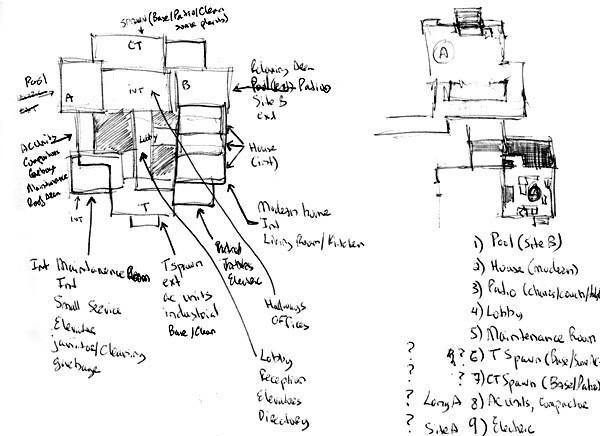 spawn (Base/Patio/Clean
some plants)
CT
Pool
A
INT
B
Relaxing Area
Pool (ext) Patio
Site B
Ext
AC Units
Compactor
Garbage
Maintenance
Roof Area
Lobby
House
(int)
INT
T
Modern home
Int
Living Room/Kitchen
Int Maintanance Room
Int
Small Service
Elevator
janitor/Cleaning
garbage
T spawn
ext
ac units
industrial
Base/Clean
Electric
Hallways
OFFices
Lobby
Reception
Elevators
Directory
A
A
1) Pool (Site B)
2) House (modern)
3) Patio
4) Lobby
5) Maintenance Room
? ? 6) T Spawn (Base/
? ? 7) CT Spawn (Base/Patio
? Long A 8) AC Units, Compactor
? Site A 9) Electric